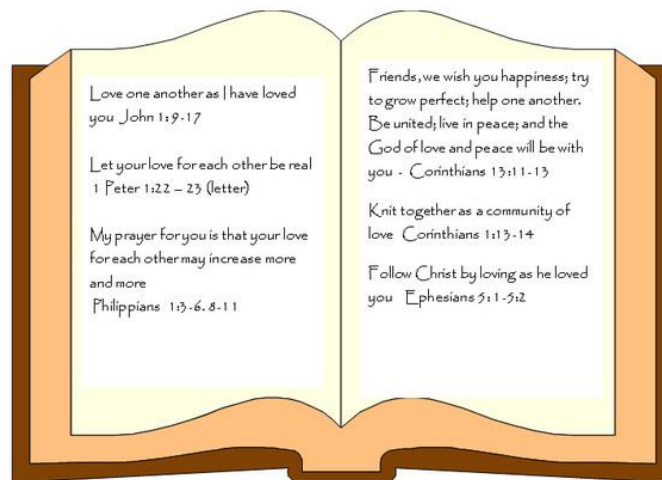 Love one another as I have loved
you John 1:9-17
Let your love for each other be real
1 Peter 1:22 – 23 (letter)
My prayer for you is that your love
for each other may increase more
and more
Philippians 1:3-6. 8-11
Friends, we wish you happiness; try
to grow perfect; help one another.
Be united; live in peace; and the
God of love and peace will be with
you - Corinthians 13:11-13
Knit together as a community of
love Corinthians 1:13-14
Follow Christ by loving as he loved
you Ephesians 5:1-5:2